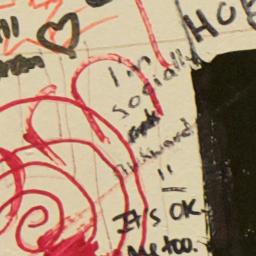 HOP
I'm
Socially
awkward
!!
It's OK.
Me too.